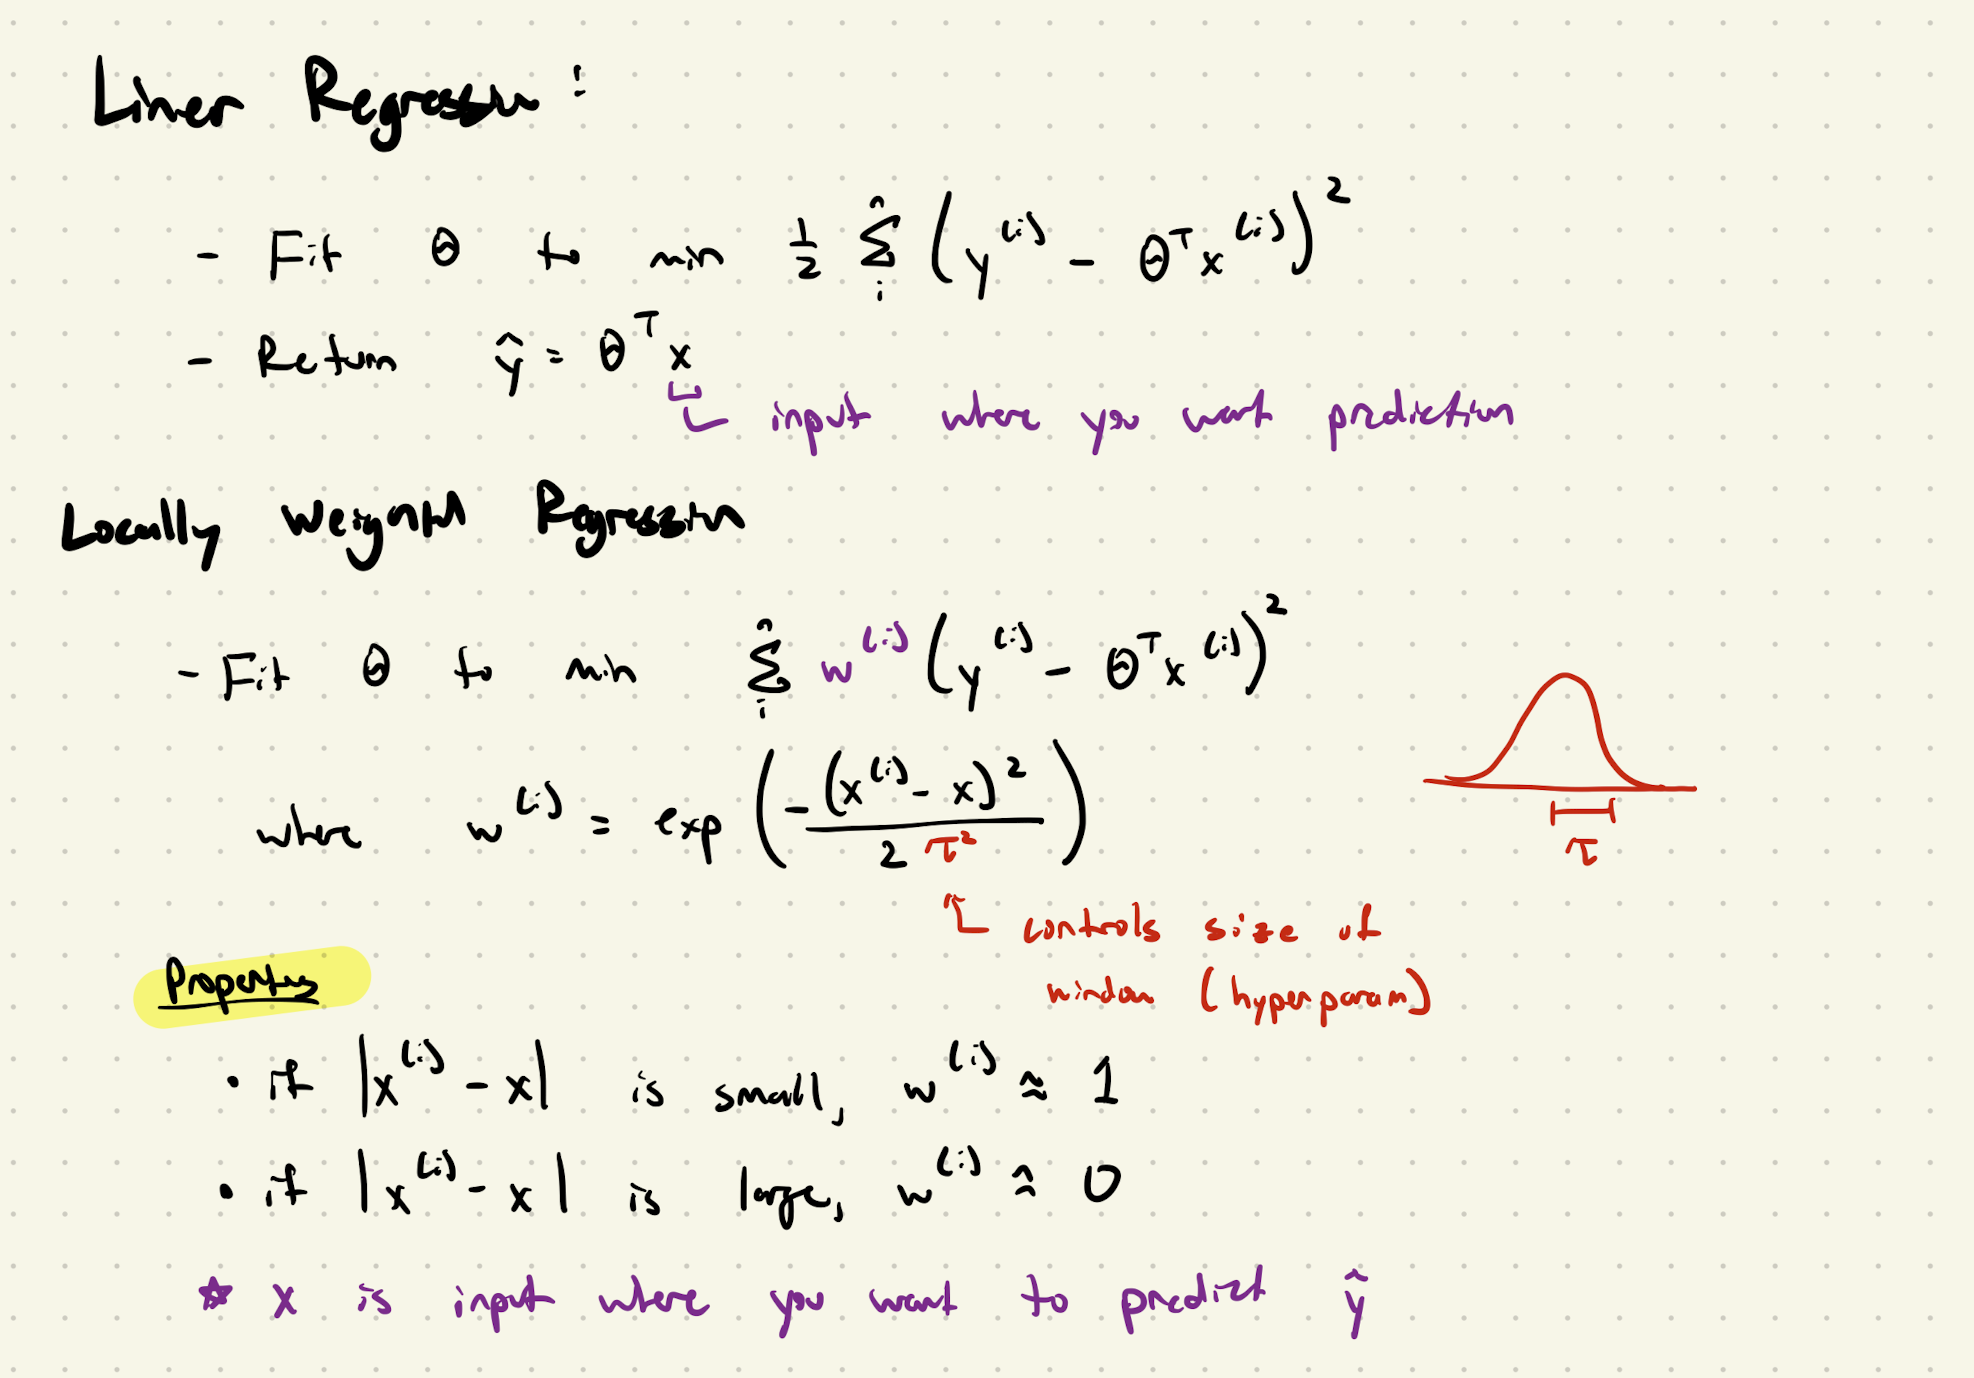 Liner Regression:
- Fit θ to min ½ Σᵢⁿ (y⁽ⁱ⁾ - θᵀx⁽ⁱ⁾)²
- Return ŷ = θᵀx
input where you want prediction
Locally Weighted Regression
- Fit θ to min Σᵢⁿ w⁽ⁱ⁾ (y⁽ⁱ⁾ - θᵀx⁽ⁱ⁾)²
where w⁽ⁱ⁾ = exp (-(x⁽ⁱ⁾ - x)² / 2τ²)
τ
controls size of
window (hyperparam)
Properties
• if |x⁽ⁱ⁾ - x| is small, w⁽ⁱ⁾ ≈ 1
• if |x⁽ⁱ⁾ - x| is large, w⁽ⁱ⁾ ≈ 0
☆ x is input where you want to predict ŷ